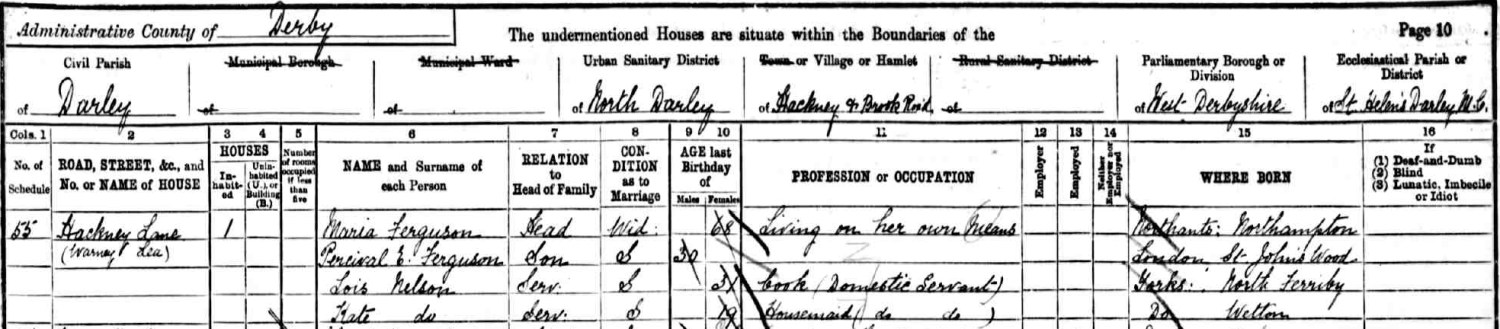 Administrative County of Derby
The undermentioned Houses are situate within the Boundaries of the
Page 10
Civil Parish
of Darley
Municipal Borough
of
Municipal Ward
of
Urban Sanitary District
of North Darley
Town or Village or Hamlet
of Hackney & Brook Road
Rural Sanitary District
of
Parliamentary Borough or
Division
of West Derbyshire
Ecclesiastical Parish or
District
of St. Helen's Darley
Cols. 1 2 3 4 5 6 7 8 9 10 11 12 13 14 15 16
No. of
Schedule
ROAD, STREET, &c., and
No. or NAME of HOUSE
HOUSES
In-
habit-
ed
Unin-
habited
(U.), or
Building
(B.)
Number
of rooms
occupied
if less
than
five
NAME and Surname of
each Person
RELATION
to
Head of Family
CON-
DITION
as to
Marriage
AGE last
Birthday
of
Males Females
PROFESSION or OCCUPATION
Employer
Employed
Neither
Employer nor
Employed
WHERE BORN
If
(1) Deaf-and-Dumb
(2) Blind
(3) Lunatic, Imbecile
or Idiot
55 Hackney Lane 1 Maria Ferguson Head Wid: 68 Living on her own Means Northants: Northampton
(Warney Lea) Percival E. Ferguson Son S 30 London, St John's Wood
Lois Nelson Serv: S 31 Cook (Domestic Servant) Yorks: North Ferriby
Kate do Serv: S 19 Housemaid ( do do ) Do Welton